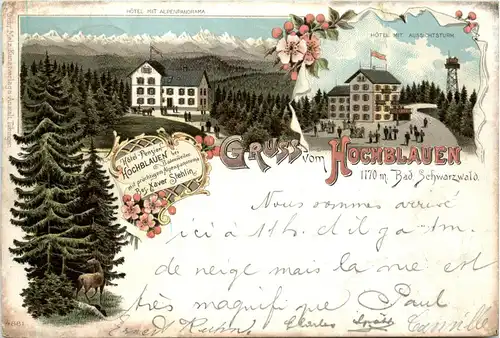 HÔTEL MIT ALPENPANORAMA
HÔTEL MIT AUSSICHTSTURM
Hôtel-Pension
HOCHBLAUEN bei
Badenweiler
mit prächtigem Alpenpanorama
Bes. Xaver Stehlin.
GRUSS vom HOCHBLAUEN
1170 m. Bad. Schwarzwald.
Nous sommes arrivé
ici à 11 h. d il y a 1 m.
de neige mais la vue est
très magnifique Paul
Ernest Kuhn. Charles